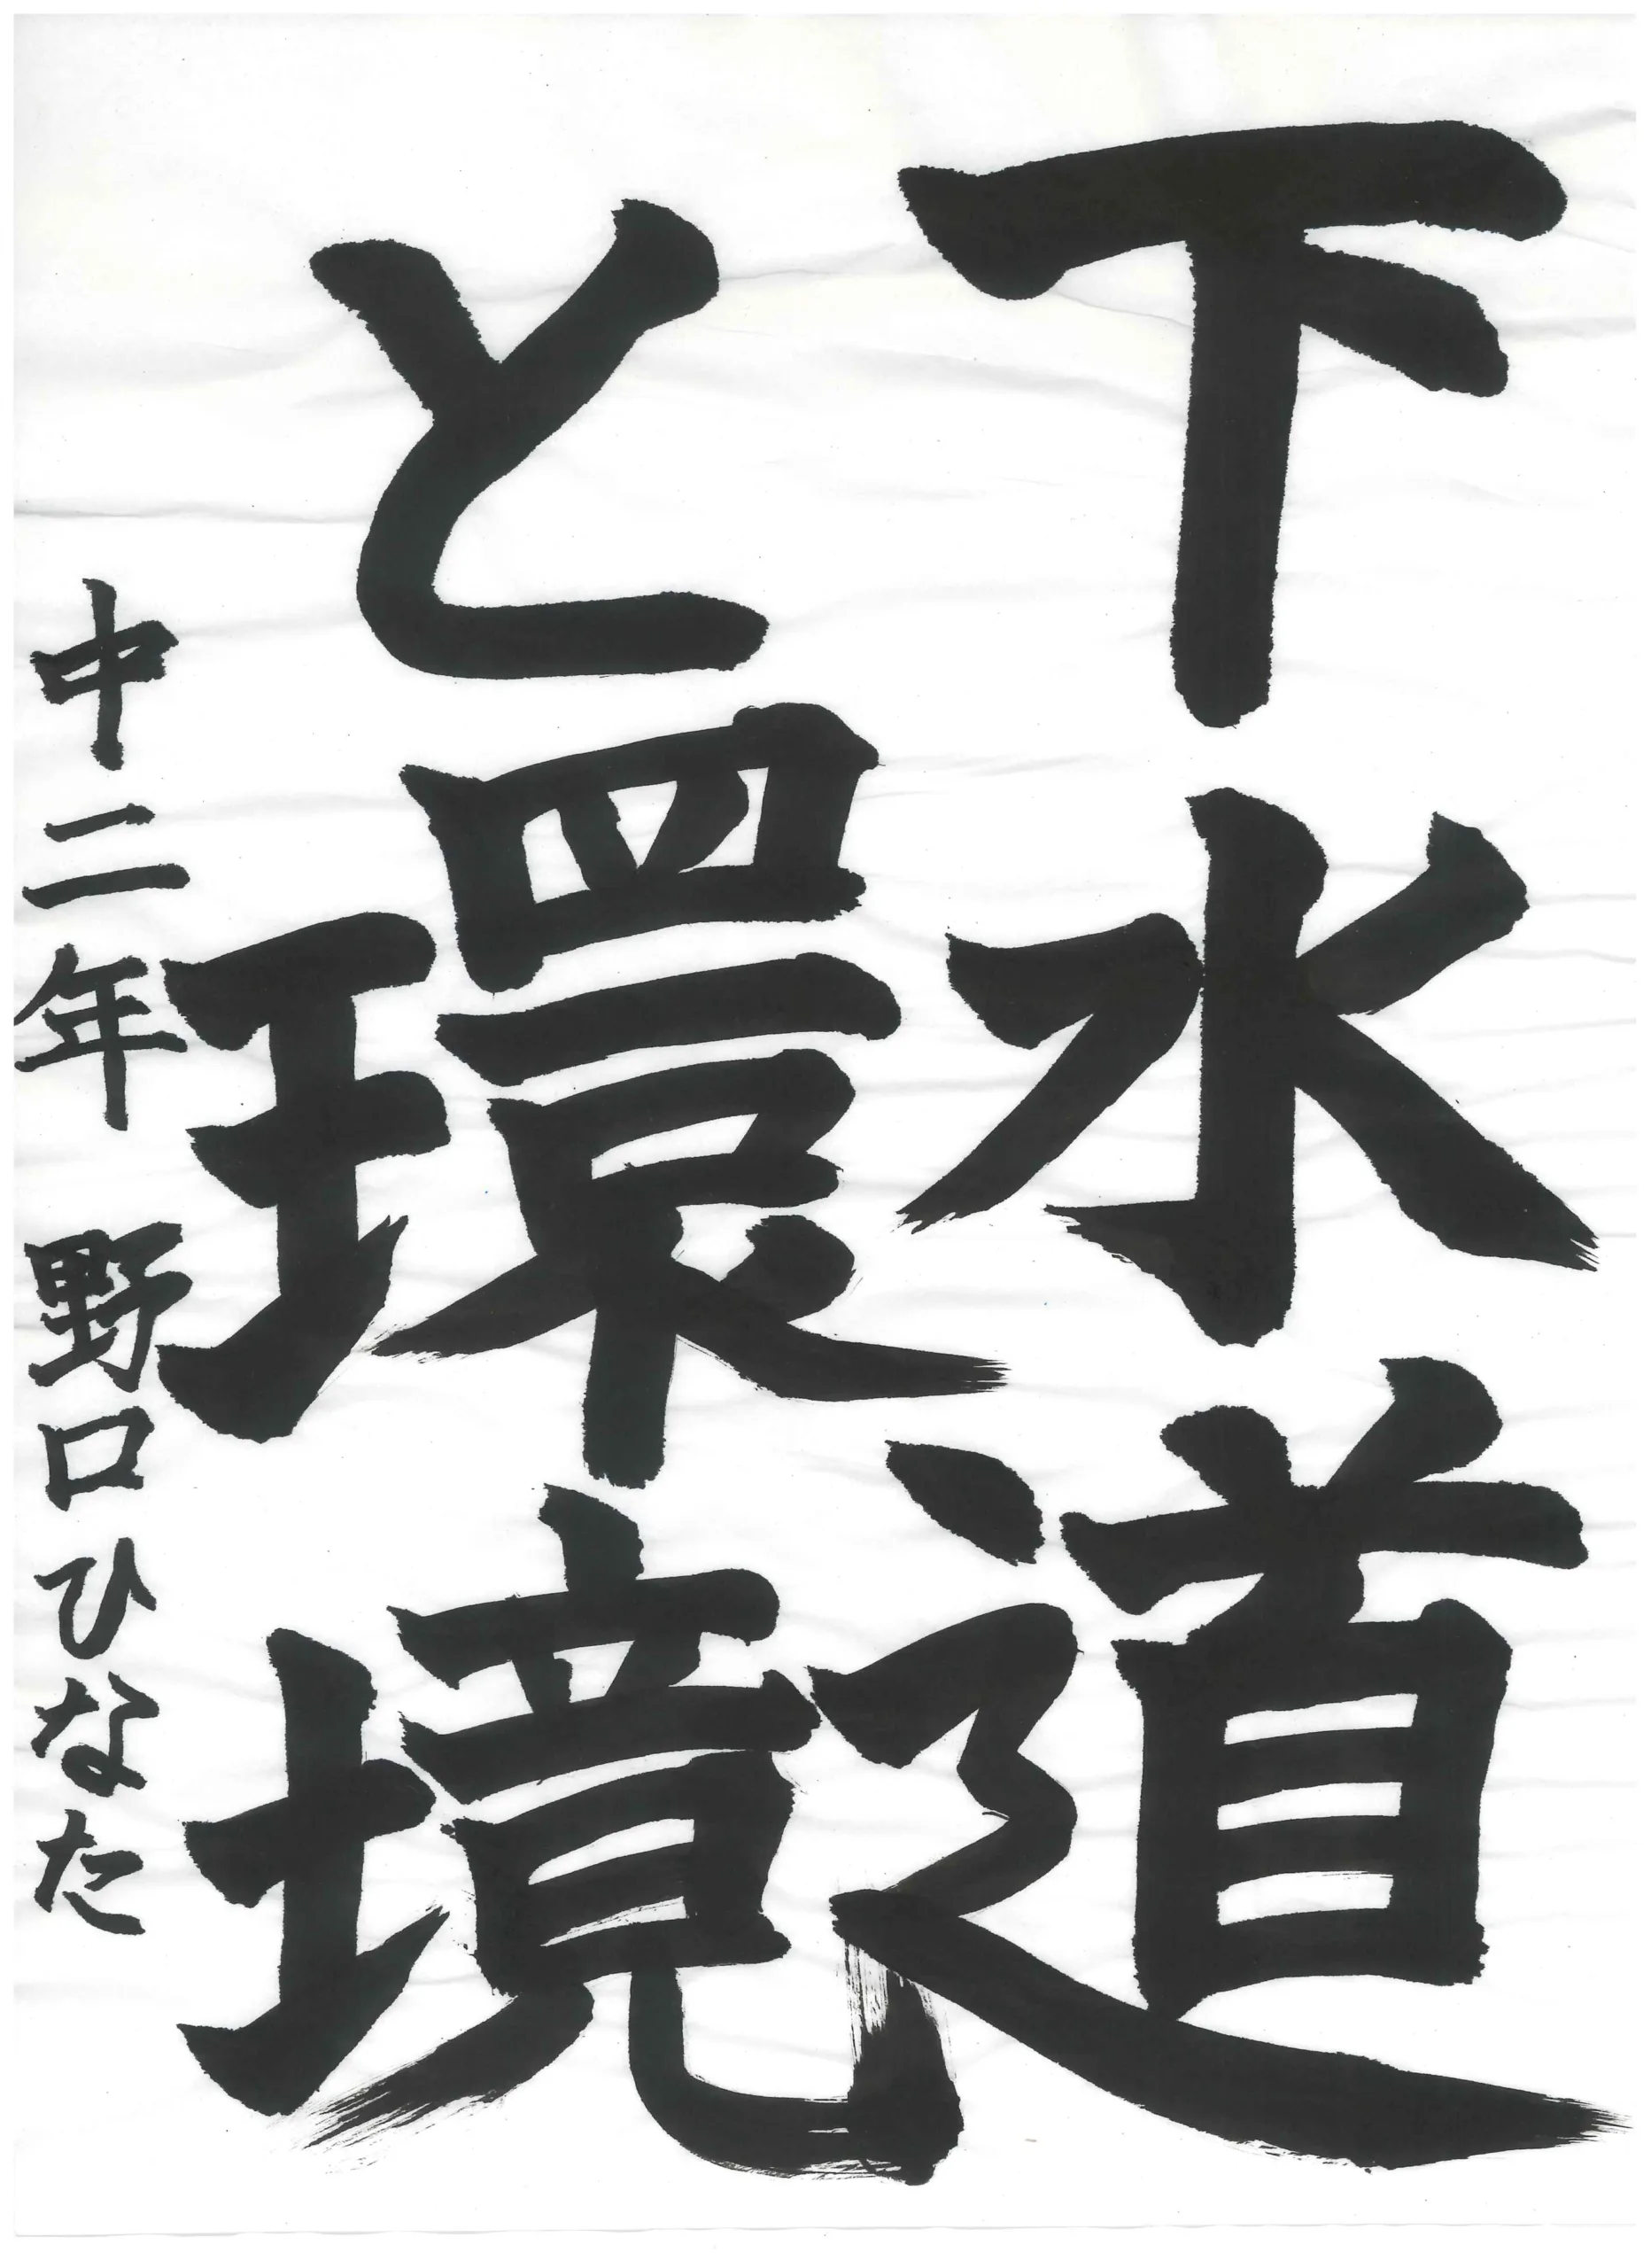 下水道
と環境
中二年 野口ひなた